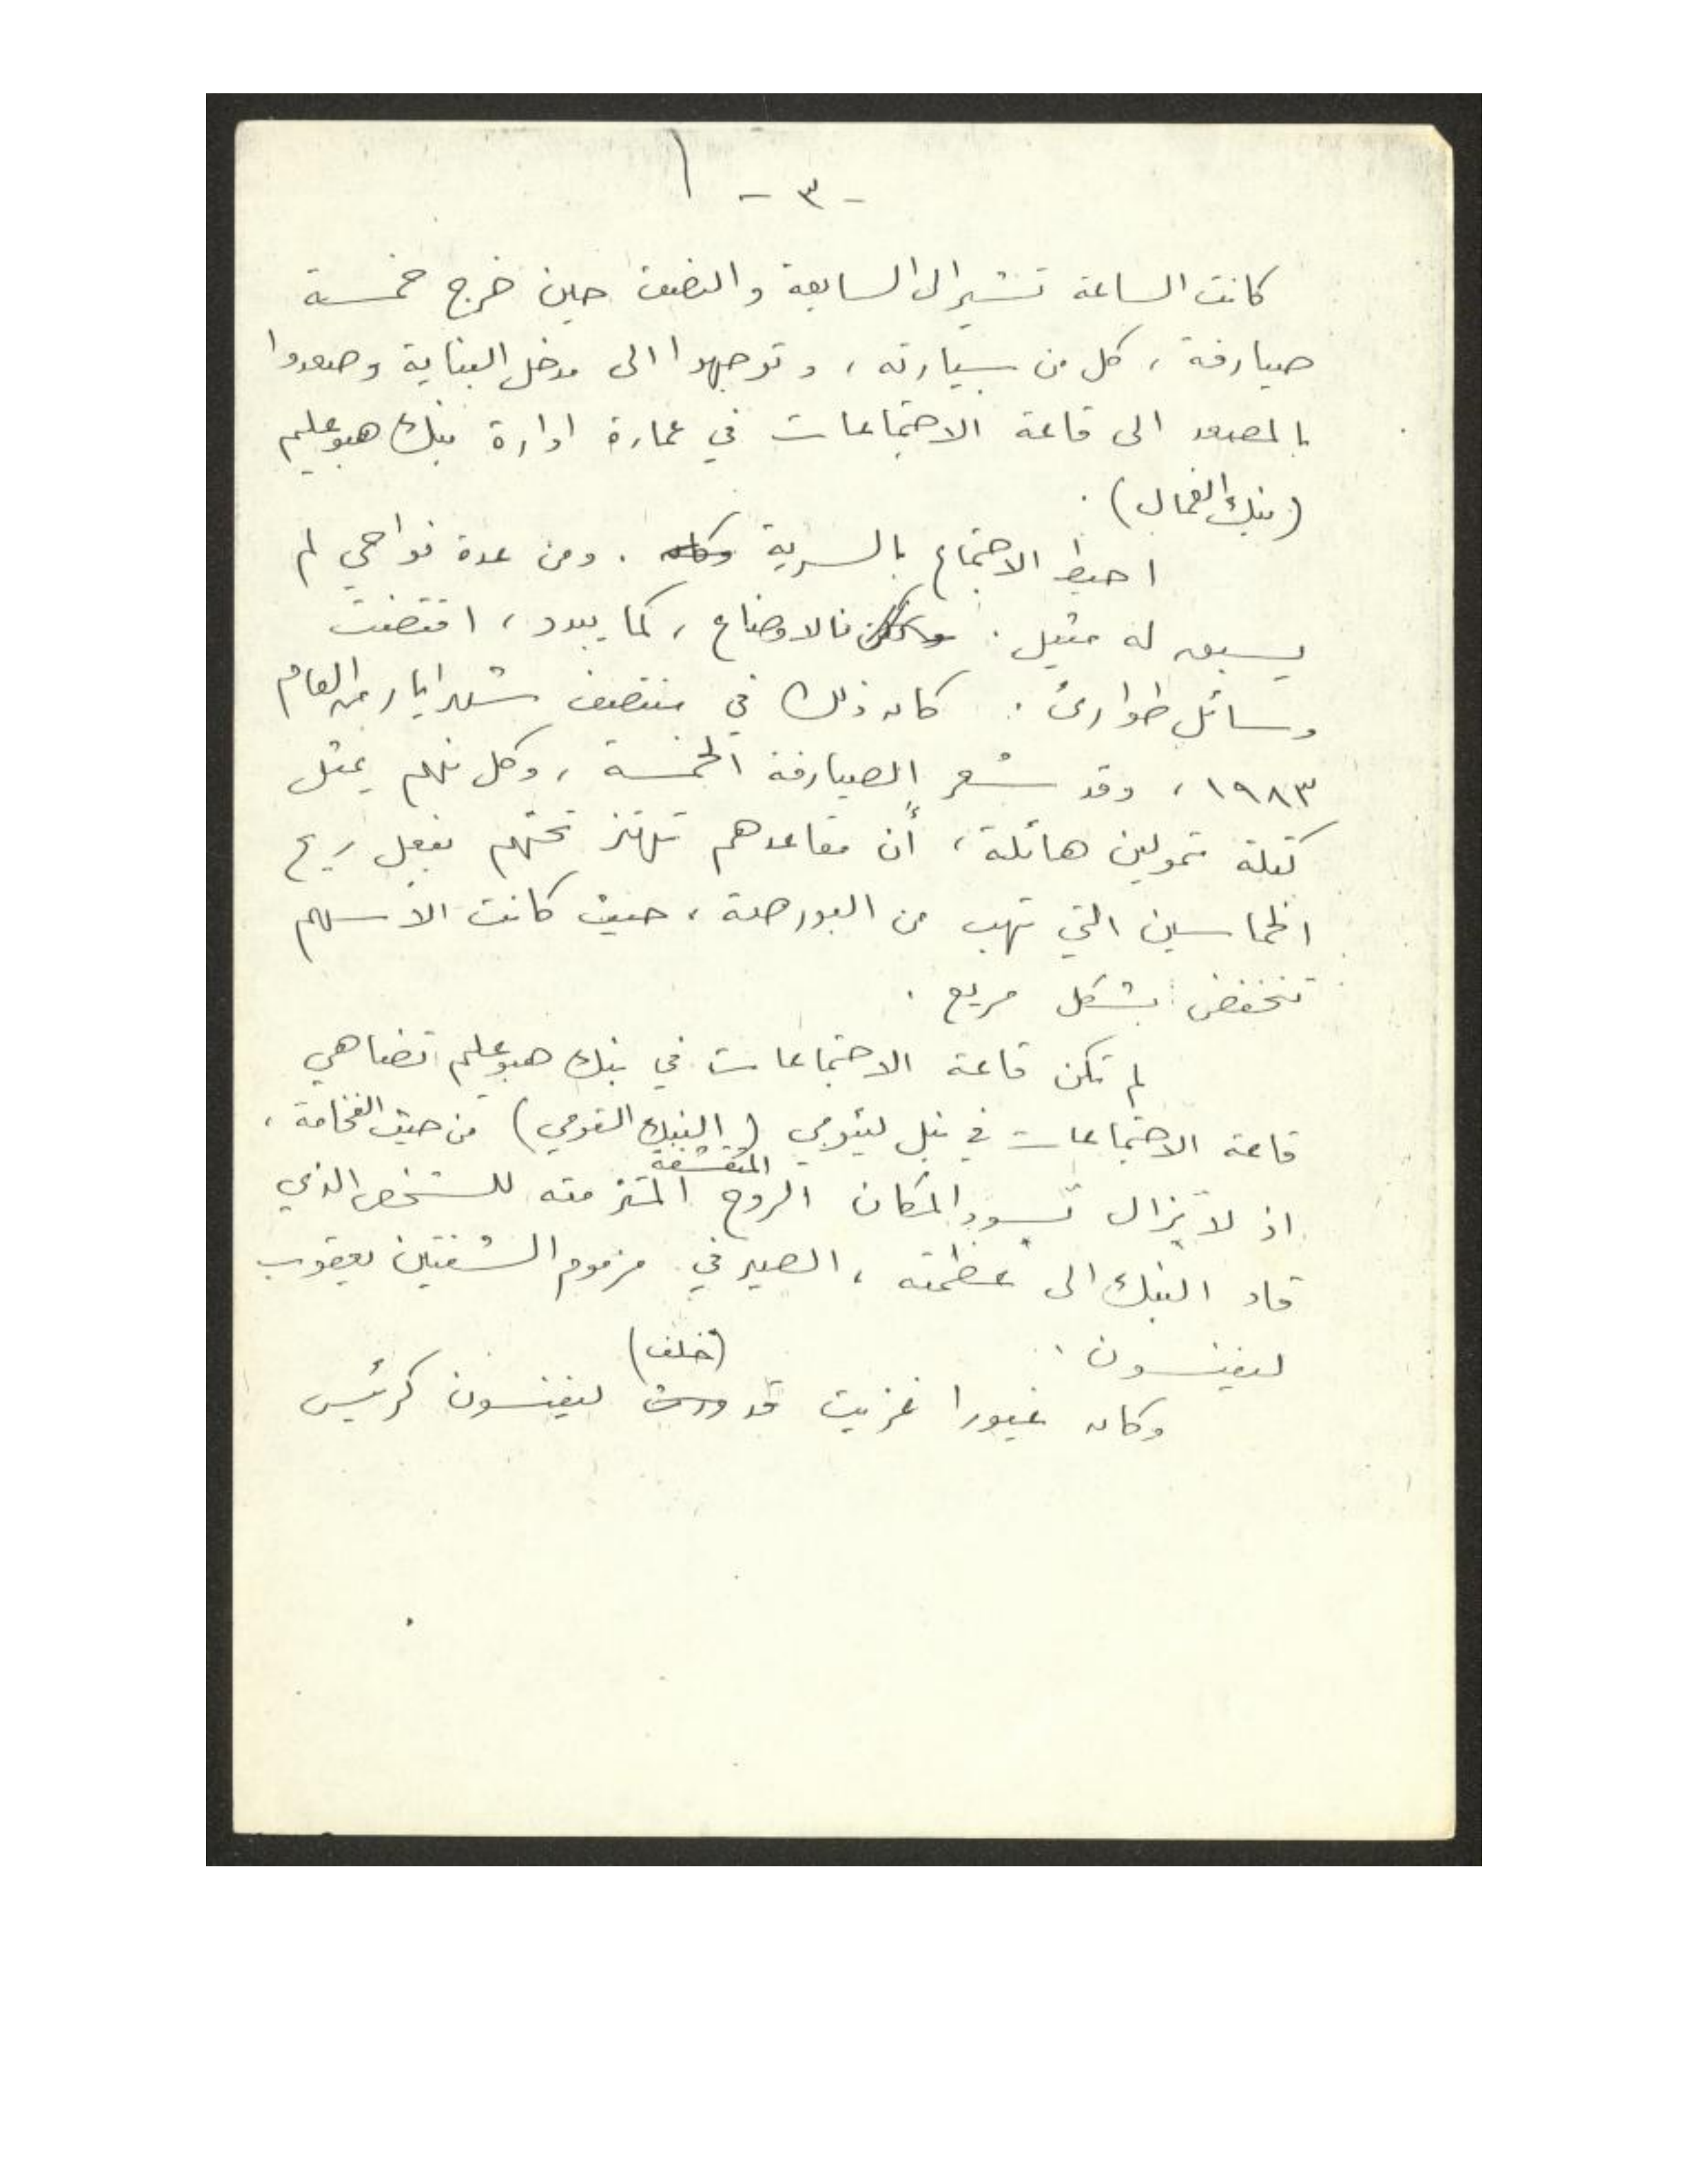 - ٣ -
كانت الساعة تشير الى السابعة والنصف حين خرج خمسة
صيارفة، كل من سيارته، وتوجهوا الى مدخل البناية وصعدوا
بالمصعد الى قاعة الاجتماعات في عمارة ادارة بنك هبوعليم
(بنك العمال).
احيط الاجتماع بالسرية وكان. ومن عدة نواحي لم
يسبق له مثيل. فالاوضاع، كما يبدو، اقتضت
وسائل طوارئ. كان ذلك في منتصف شهر ايار من العام
١٩٨٣، وقد شعر الصيارفة الخمسة، وكل منهم يمثل
كتلة تمولين هائلة، أن مقاعدهم تهتز تحتهم بفعل ريح
الخماسين التي تهب من البورصة، حيث كانت الأسهم
تنخفض بشكل مريع.
لم تكن قاعة الاجتماعات في بنك هبوعليم تضاهي
قاعة الاجتماعات في بنل ليئومي (البنك القومي) من حيث الفخامة،
المتقشفة
اذ لا يزال تسود المكان الروح المتزمته للشخص الذي
قاد البنك الى عظمته، الصيرفي مزموم الشفتين يعقوب
ليفنسون.
(خلف)
وكان غيورا غزيت قد ورث ليفنسون كرئيس